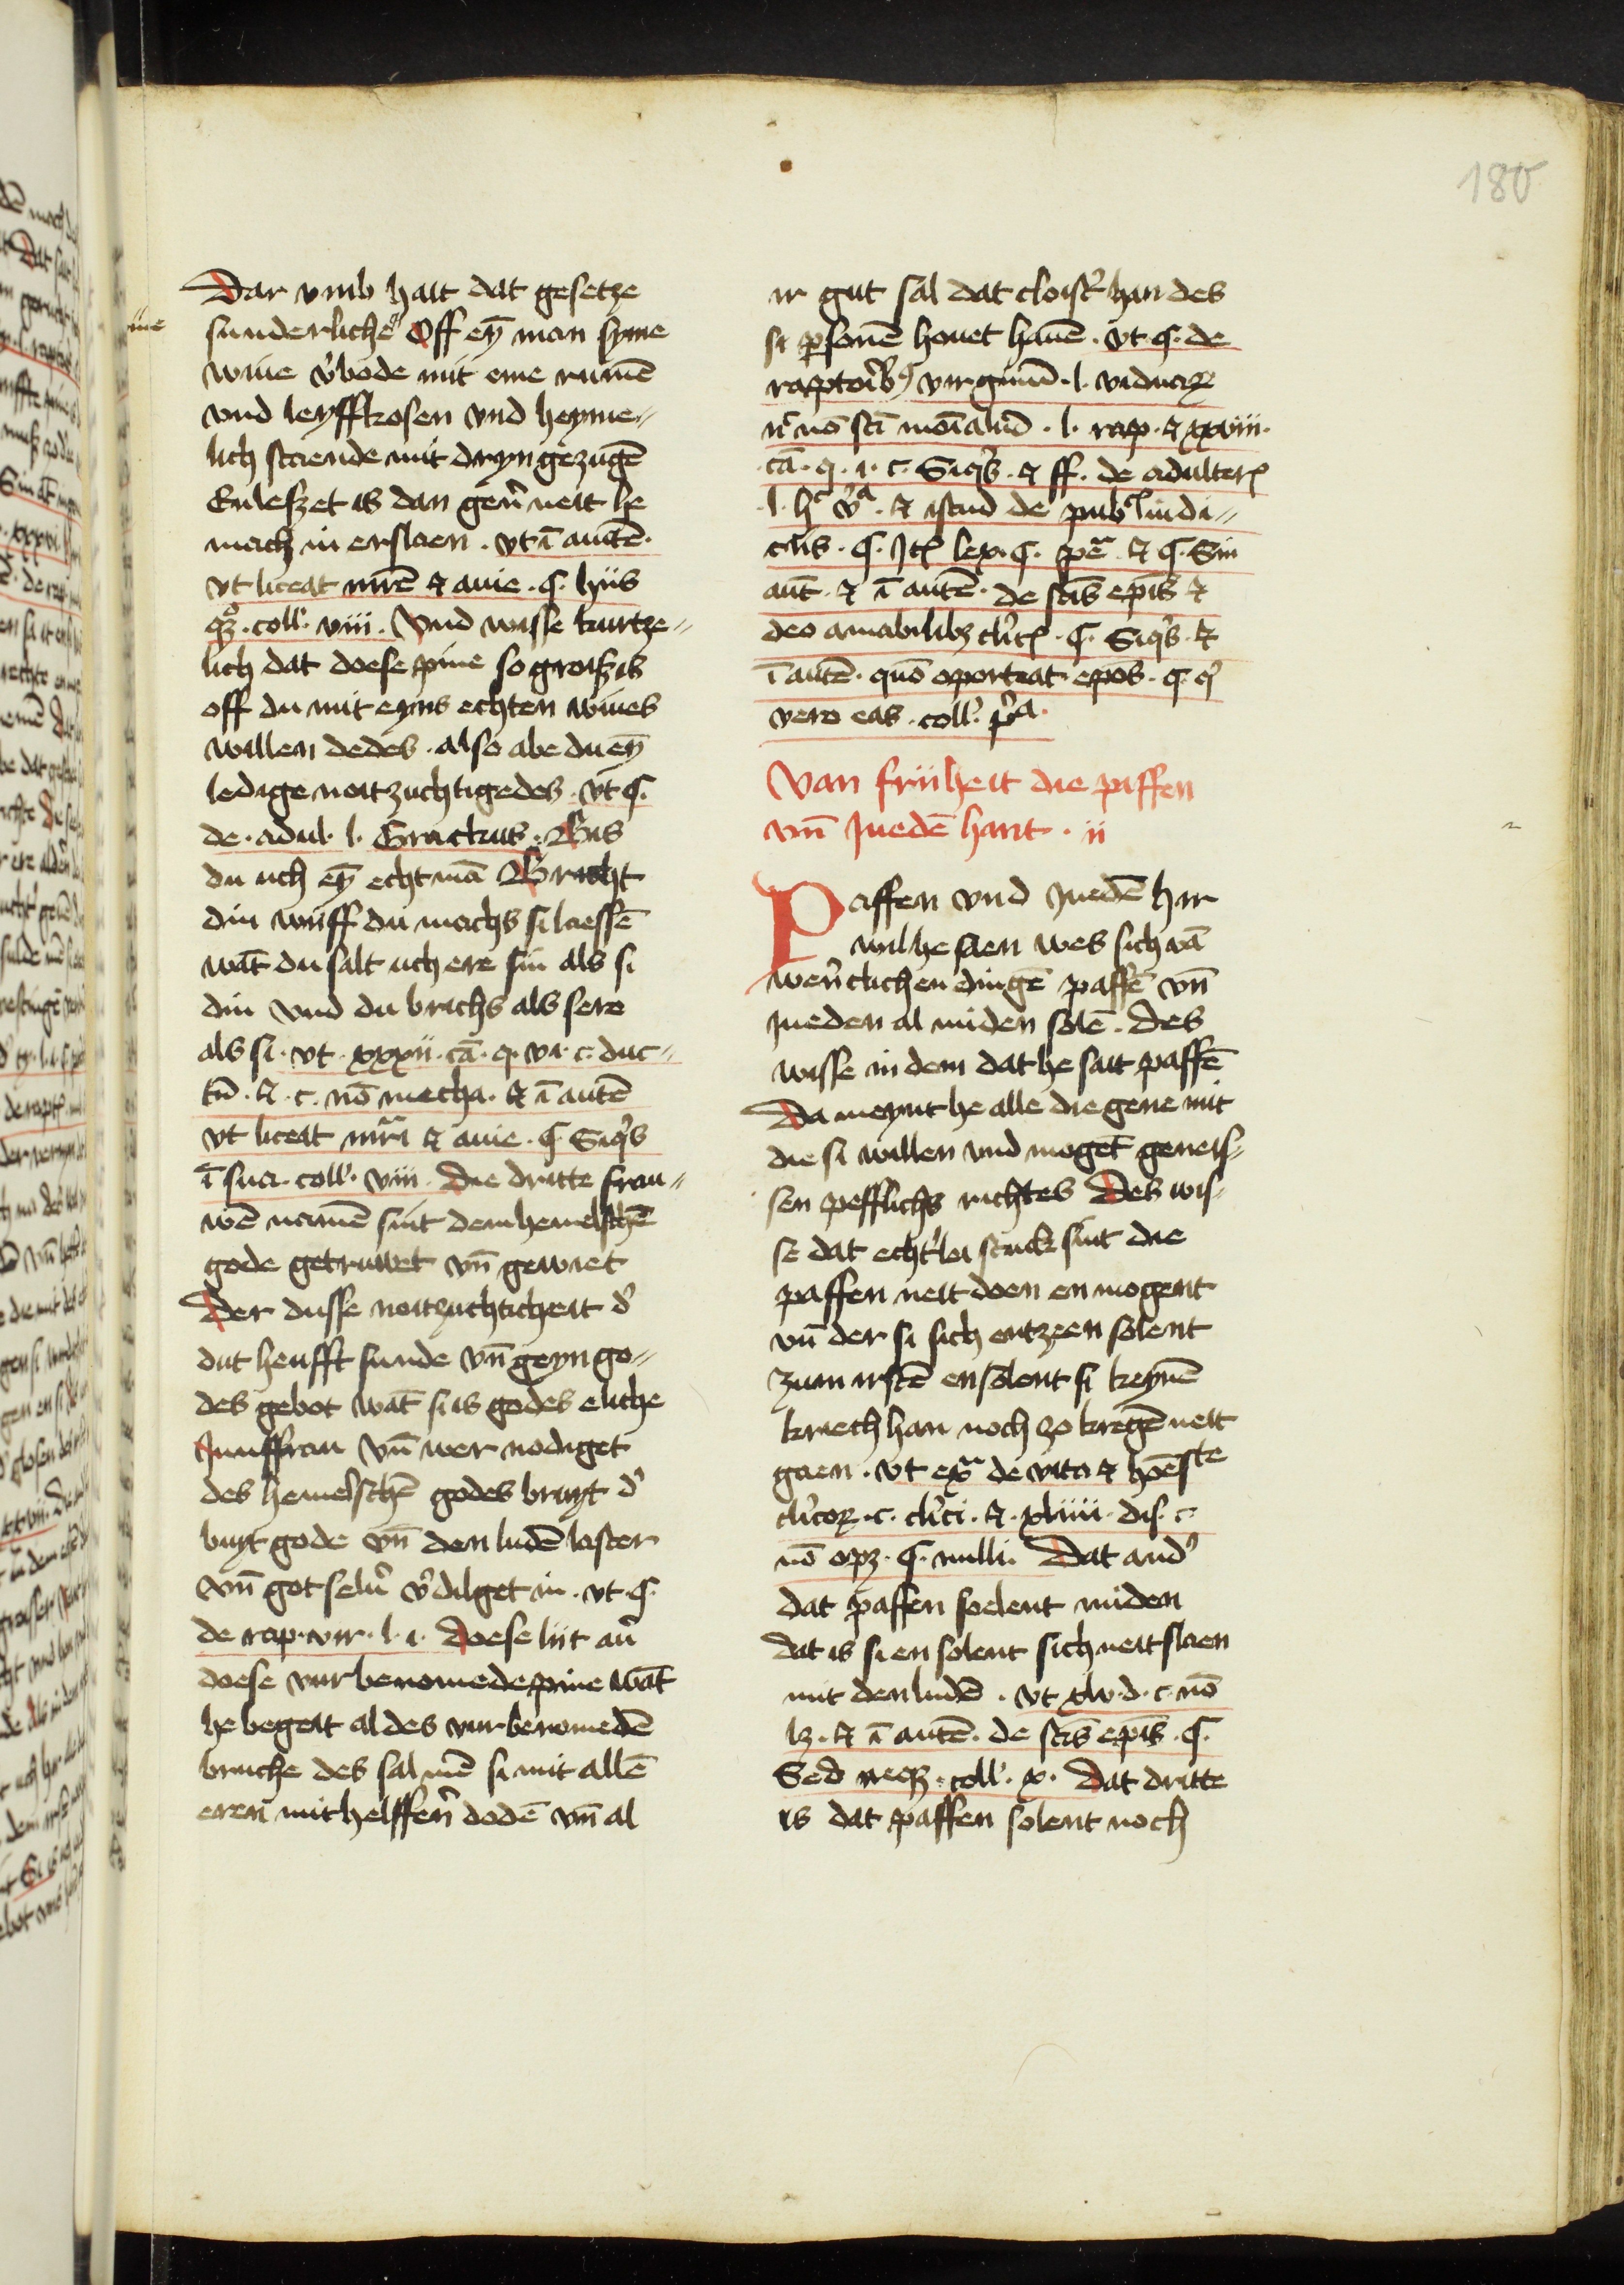 180
Dar vmb hait dat gesetze
sunderliche Off eyn̄ man syme
wiue v̓bode mit eme rumē
vnd leyffkosen vnd heyme„
lich staende mit dryn gezugē
Enlesset is dan gen̓ neit he
mach in erslaen . vt ī autē .
vt liceat mr̄e et auie . §. hiis
qz . coll̓ . viii . Vnd wisse kurtze„
lich dat doese pine so groiss is
off du mit eyns echten wiues
willen dedes . also abe du eyn̄
ledige noitzuchtigedes . vt §.
de . adul . l . Grackus . Bis
du uch eyn̄ echt mā Bricht
din wiiff du machs si laessē
wāt du salt uch ere sin als si
din vnd du brichs als sere
als si . vt . xxxii . cā . q. vi . c . duc„
tū . et . c . nō mecha . et ī autē
vt liceat mr̄i et auie . §. Siq̓s
ī sua . coll̓ . viii . Die dritte frau„
wē namē sint dem hemelschē
gode getruwet vn̄ gewiet
Der dusse noitzuchticheit d̓
dut heufft sunde vn̄ geyn go„
des gebot wāt si is godes eliche
Junffrau vn̄ wer nodiget
des hemelschē godes bruyt d̓
buyt gode vn̄ den ludē laster
vn̄ got selu̓ v̓dilget in . vt . §.
de rap . vir . l . i . Doese liit au̓
doese vurbenomede pine wāt
he begeit al des vurbenomedē
bruche des sal mē si mit allē
eren mithelffen̓ dodē vn̄ al
ir gut sal dat cloist̓ han des
si p̱sonē houet hauē . vt . §. de
raptorib⁹ virginū . l . viduaꝝ
nc̄ nō sc̄i moīaliū . l . rap . et xxviii .
cā . q . i . c . Siq̓s . et ff . de adulter̄
l . h̓ v̓a . et istud de publ̓ iudi„
ciis . §. It̄ lex . §. pe̓ . et §. Sin
aūt . et ī autē . de sc̄is ep̄is et
deo amabilibz cl̓ic̄ . §. Siq̓s . et
ī autē . quō oporteat . ep̄os . §. q̓
vero eas . coll̓ . p̓a .
Van friiheit die paffen
vn̄ Juedē hant . ii
Paffen vnd Juedē hir
wil he saen wes sich vā
wer̄tlichen dingē paffē vn̄
Jueden al miden solē . Des
wisse in dem dat he sait paffē
Da meynt he alle die gene mit
die si willen vnd mogēt geneis„
sen pefflichs richtes Des wis„
se dat echt̓lei stuck sint die
paffen neit doen en mogent
vn̄ der si sich entzeen solent
zum irstē ensolent si keynē
kriech han noch zo kregē neit
gaen . vt ex̄ de vita et hōeste
cl̓icoꝝ . c . cl̓ici . et . xliiii . dis . c .
nō opz . §. nulli . Dat and̓
dat paffen soelent miden
dat is si en solent sich neit slaen
mit den ludē . vt xlv . d . c . nō
lz . et ī autē . de sc̄is ep̄is . §.
Sed neqz . coll̓ . x . Dat dritte
is dat paffen solent noch